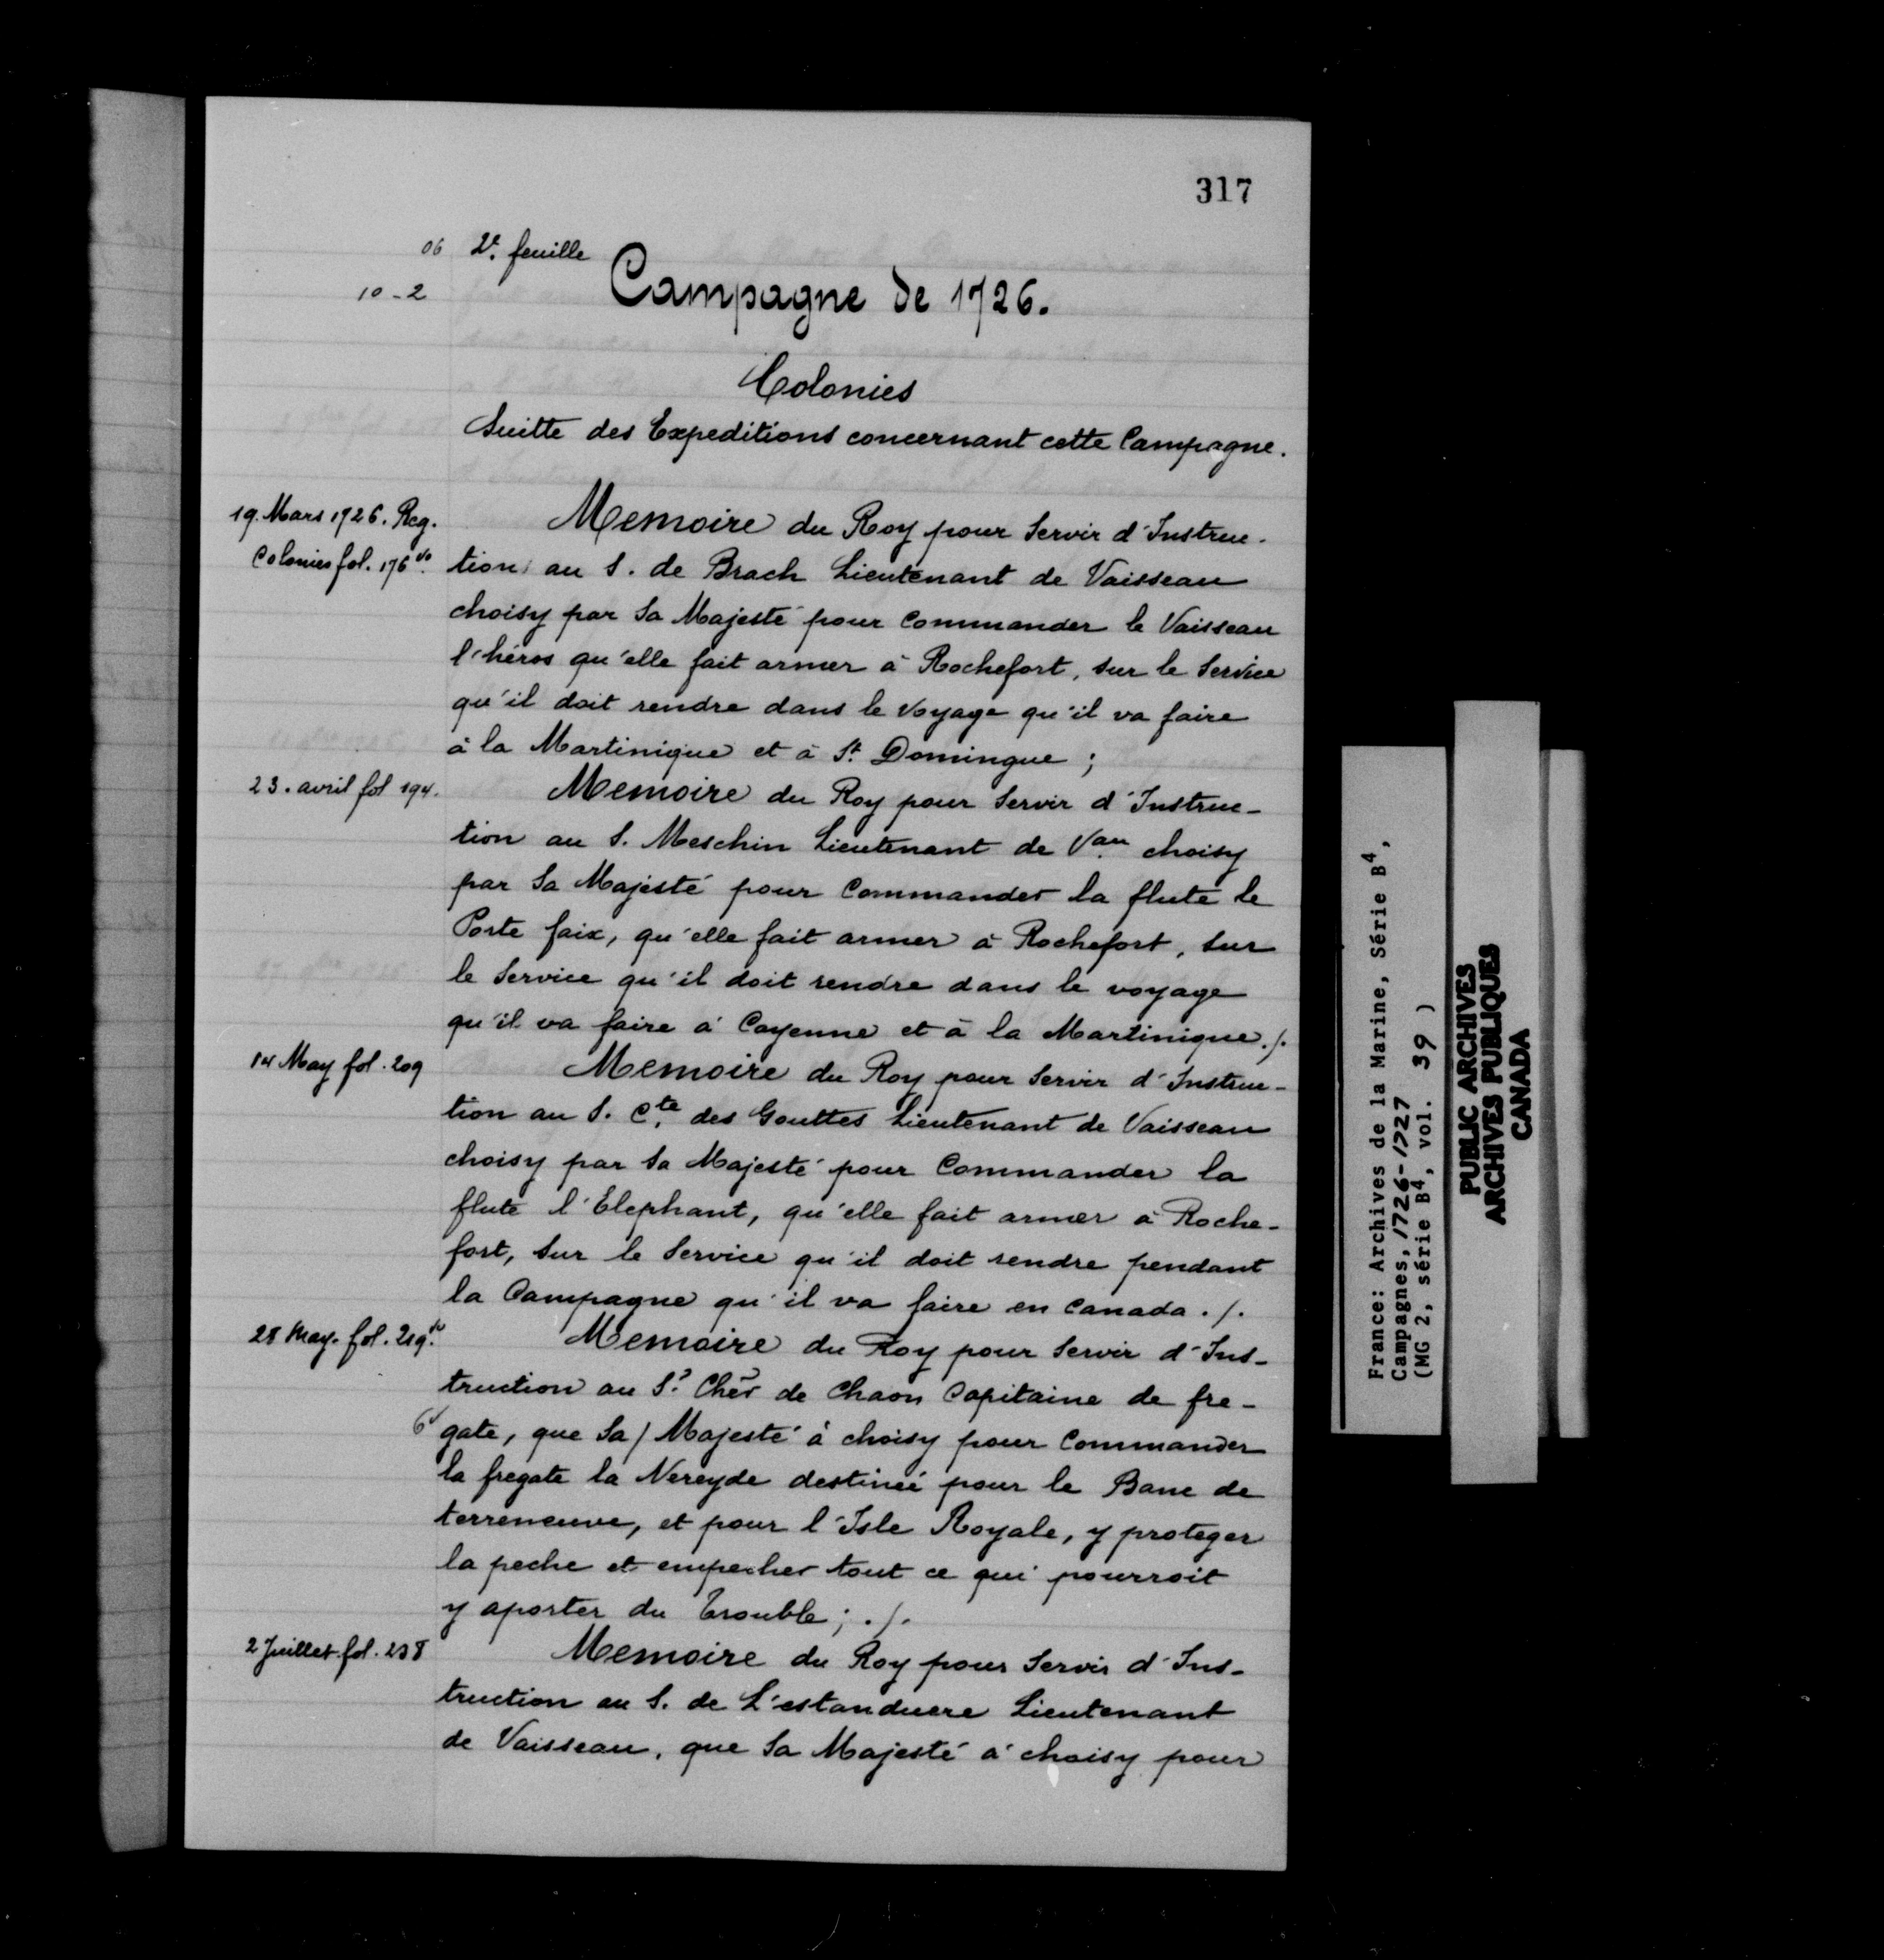 317
06 2e. feuille
10-2
Campagne de 1726.
Colonies
Suitte des Expeditions concernant cette Campagne.
19. Mars 1726. Reg.
Colonies fol. 176 vo.
Memoire du Roy pour Servir d'Instruc-
tion au S. de Brach Lieutenant de Vaisseau
choisy par Sa Majesté pour Commander le Vaisseau
l'héros qu'elle fait armer à Rochefort, sur le Service
qu'il doit rendre dans le Voyage qu'il va faire
à la Martinique et à St. Domingue ;
23. avril fol 194.
Memoire du Roy pour Servir d'Instruc-
tion au S. Meschin Lieutenant de Vau. choisy
par Sa Majesté pour Commander la flute le
Porte faix, qu'elle fait armer à Rochefort, sur
le Service qu'il doit rendre dans le voyage
qu'il va faire à Cayenne et à la Martinique./.
14 May fol. 209
Memoire du Roy pour Servir d'Instruc-
tion au S. Cte. des Gouttes Lieutenant de Vaisseau
choisy par Sa Majesté pour Commander la
flute l'Elephant, qu'elle fait armer à Roche-
fort, sur le Service qu'il doit rendre pendant
la Campagne qu'il va faire en Canada ./.
28 May. fol. 219 vo.
Memoire du Roy pour Servir d'Ins-
truction au Sr. Cher de Chaon Capitaine de fre-
gate, que Sa / Majesté à choisy pour Commander
la fregate la Nereyde destineé pour le Banc de
terreneuve, et pour l'Isle Royale, y proteger
la peche et empecher tout ce qui pourroit
y aporter du trouble ; ./.
2 Juillet fol. 238
Memoire du Roy pour Servir d'Ins-
truction au S. de L'estanduere Lieutenant
de Vaisseau, que Sa Majesté à choisy pour
France: Archives de la Marine, Série B4,
Campagnes, 1726-1727
(MG 2, série B4, vol. 39 )
PUBLIC ARCHIVES
ARCHIVES PUBLIQUES
CANADA